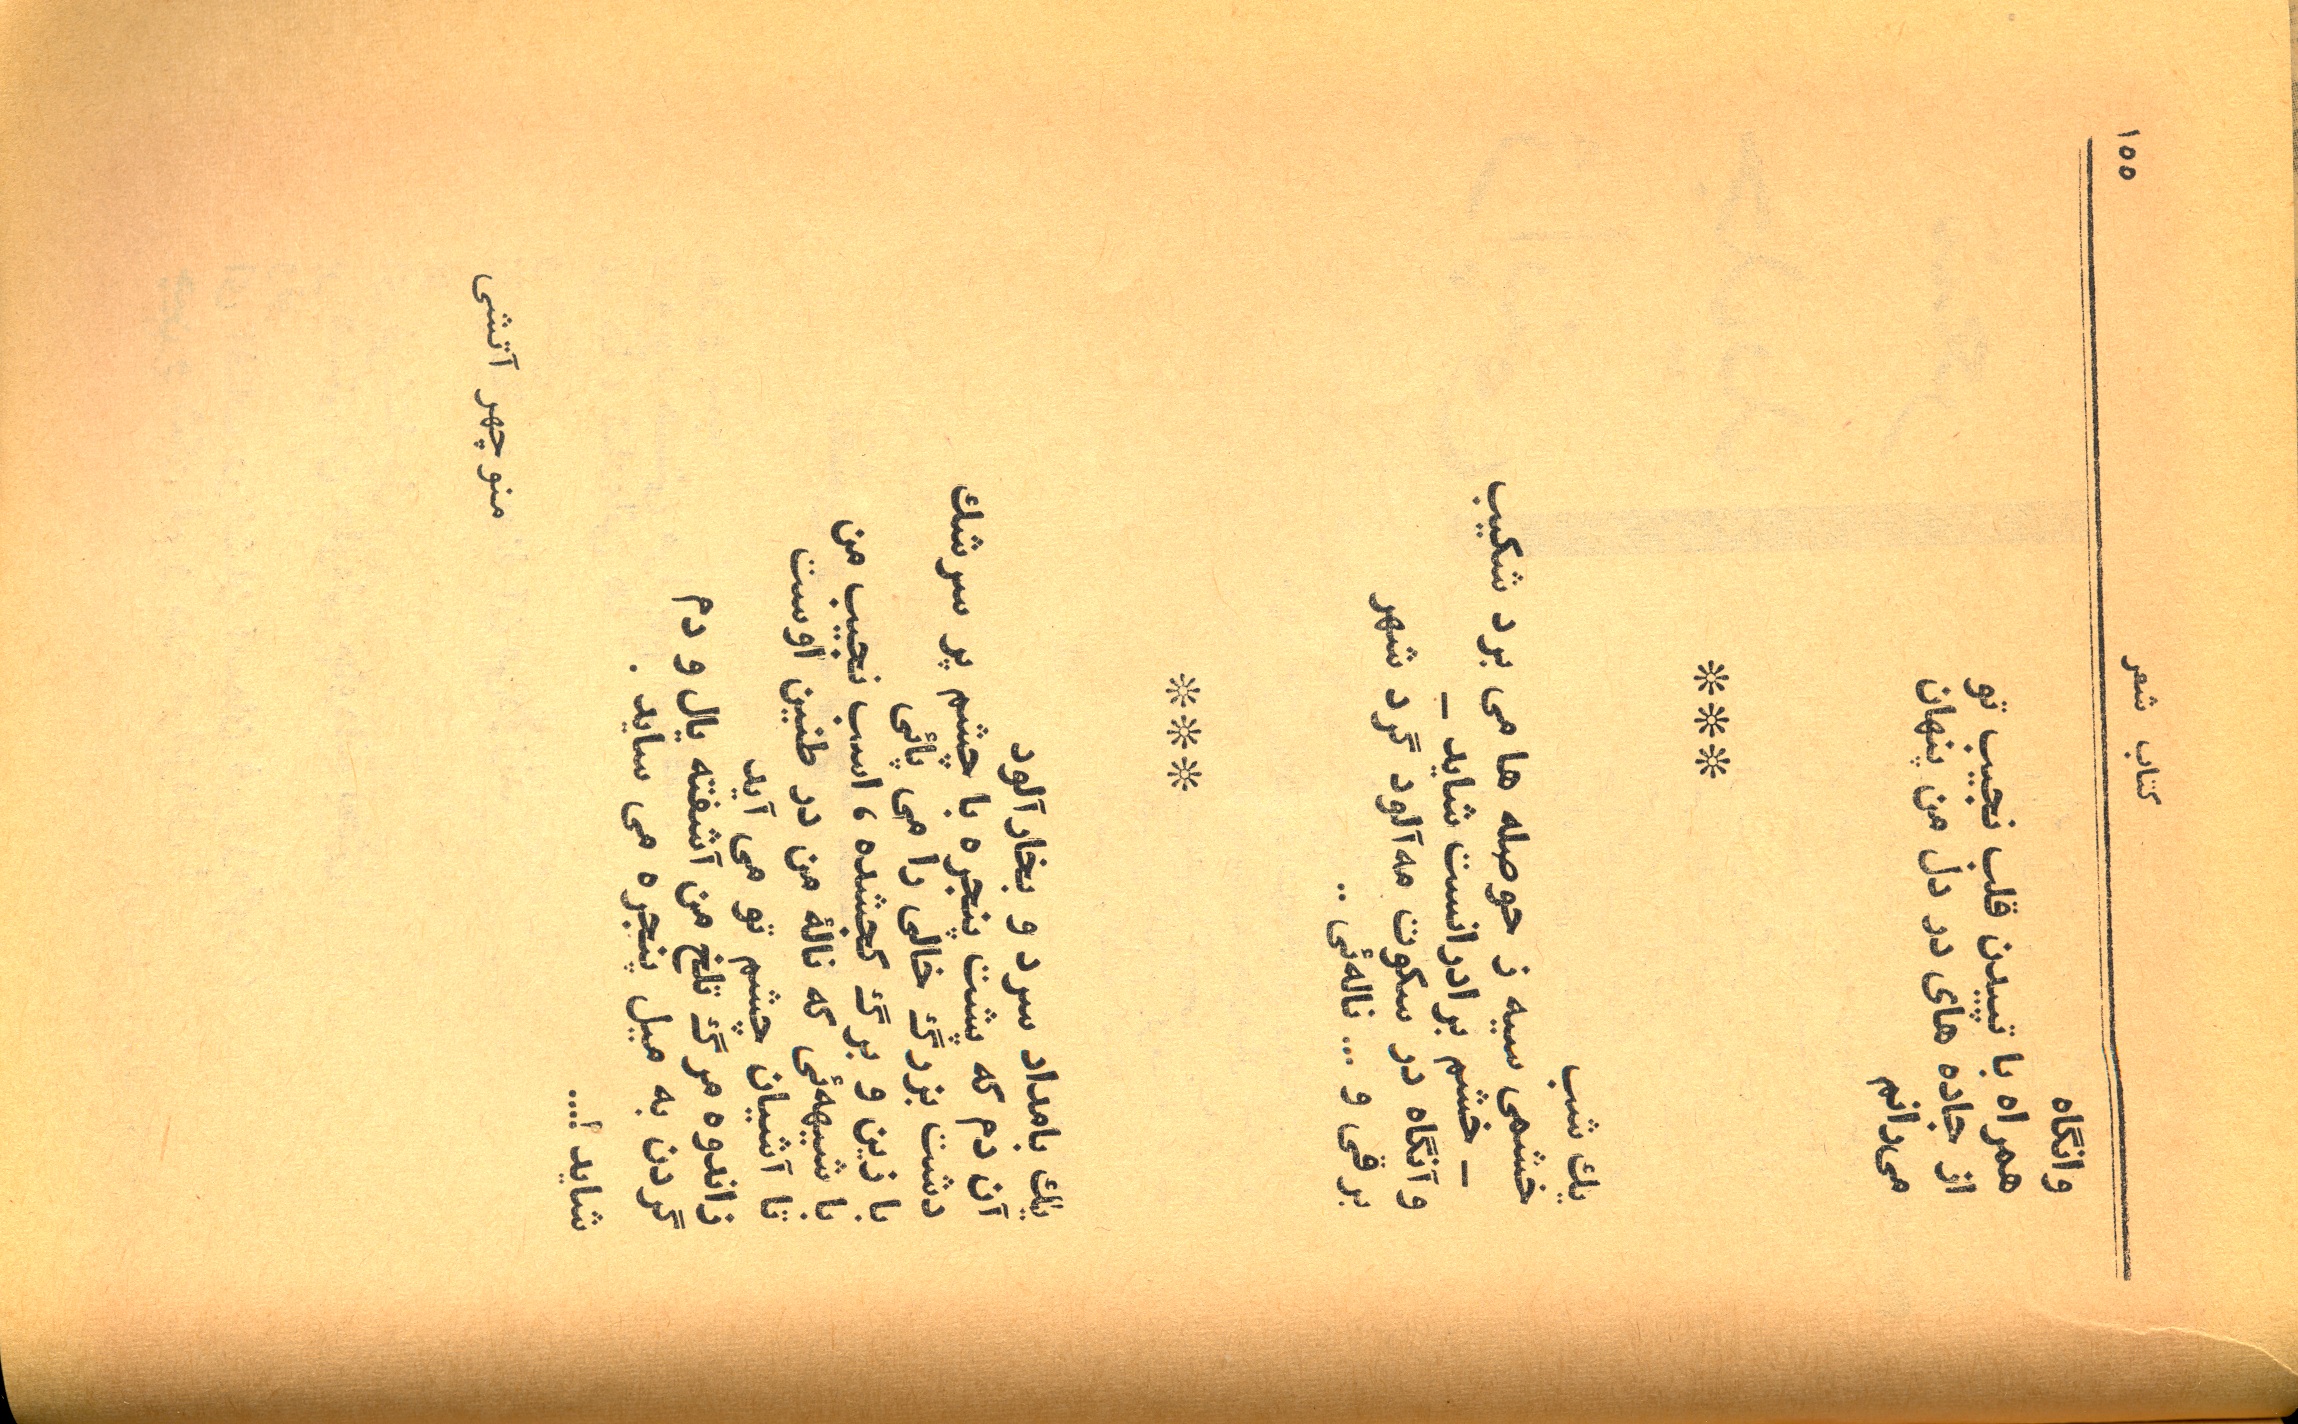 کتاب شعر
۱۵۵
وانگاه
همراه با تپیدن قلب نجیب تو
از جاده های در دل من پنهان
می‌رانم
※※※
یك شب
خشمی سیه ز حوصله ها می برد شکیب
– خشم برادرانست شاید –
و آنگاه در سکوت مه‌آلود گرد شهر
برقی و ... ناله‌ئی ..
※※※
یك بامداد سرد و بخارآلود
آن دم که پشت پنجره با چشم پر سرشك
دشت بزرگ خالی را می پائی
با زین و برگ کجشده ، اسب نجیب من
با شیهه‌ئی که نالهٔ من در طنین اوست
تا آشیان چشم تو می آید
زاندوه مرگ تلخ من آشفته یال و دم
گردن به میل پنجره می ساید .
شاید !...
منوچهر آتشی